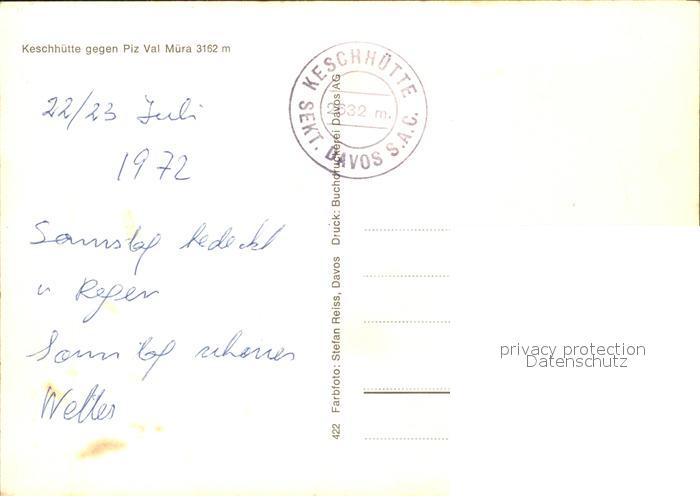 Keschhütte gegen Piz Val Müra 3162 m
22/23 Juli
1972
Samstag bedeckt
u Regen
Sonntag schönes
Wetter
KESCHHÜTTE
2632 m.
SEKT. DAVOS S.A.C.
422 Farbfoto: Stefan Reiss, Davos Druck: Buchdruckerei Davos AG
privacy protection
Datenschutz